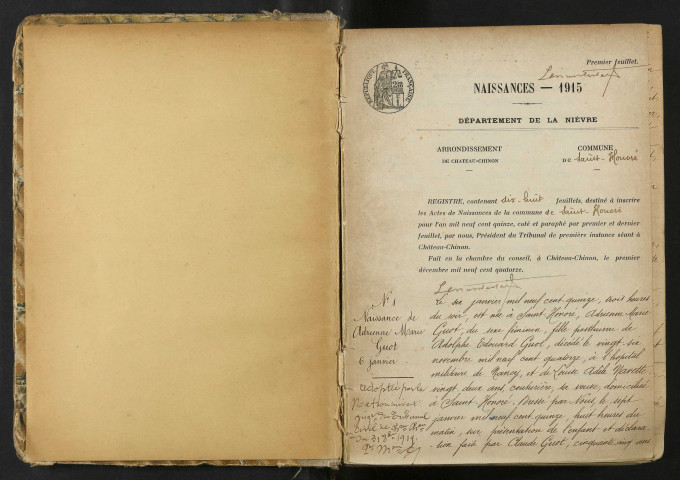 Premier feuillet.
RÉPUBLIQUE FRANÇAISE
NAISSANCES — 1915
DÉPARTEMENT DE LA NIÈVRE
ARRONDISSEMENT
DE CHATEAU-CHINON
COMMUNE
DE Saint-Honoré
REGISTRE, contenant dix-huit feuillets, destiné à inscrire
les Actes de Naissances de la commune de Saint-Honoré
pour l'an mil neuf cent quinze, coté et paraphé par premier et dernier
feuillet, par nous, Président du Tribunal de première instance séant à
Château-Chinon.
Fait en la chambre du conseil, à Château-Chinon, le premier
décembre mil neuf cent quatorze.
N° 1
Naissance de
Adrienne Marie
Guot
6 janvier
adoptée par la
Nation
du Tribunal
1919
Le six janvier mil neuf cent quinze, trois heures
du soir, est née à Saint Honoré, Adrienne Marie
Guot, du sexe féminin, fille posthume de
Adolphe Edouard Guot, décédé le vingt six
novembre mil neuf cent quatorze, à l'hôpital
militaire de Nancy, et de Louise Adèle
vingt deux ans, couturière, sa veuve, domiciliée
à Saint Honoré. Dressé par nous, le sept
janvier mil neuf cent quinze, huit heures du
matin, sur présentation de l'enfant et déclara
tion faite par Claude Guot, cinquante cinq ans